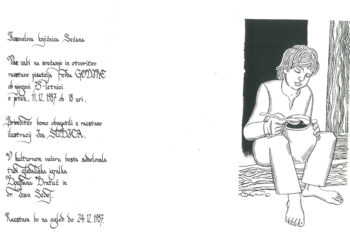 Kosovelova knjižnica Sežana
Vas vabi na srečanje in otvoritev
razstave pisatelja Forda GODINE
ob njegovi 75-letnici
v petek, 11.12. 1987 ob 18 uri.
Prireditev bomo obogatili z razstavo
ilustracij Iva
V kulturnem večeru bosta sodelovala
tudi gledališka igralka
Bogdana Bratuž in
dr. Ivan Sedej.
Razstava bo na ogled do 24.12.1987.